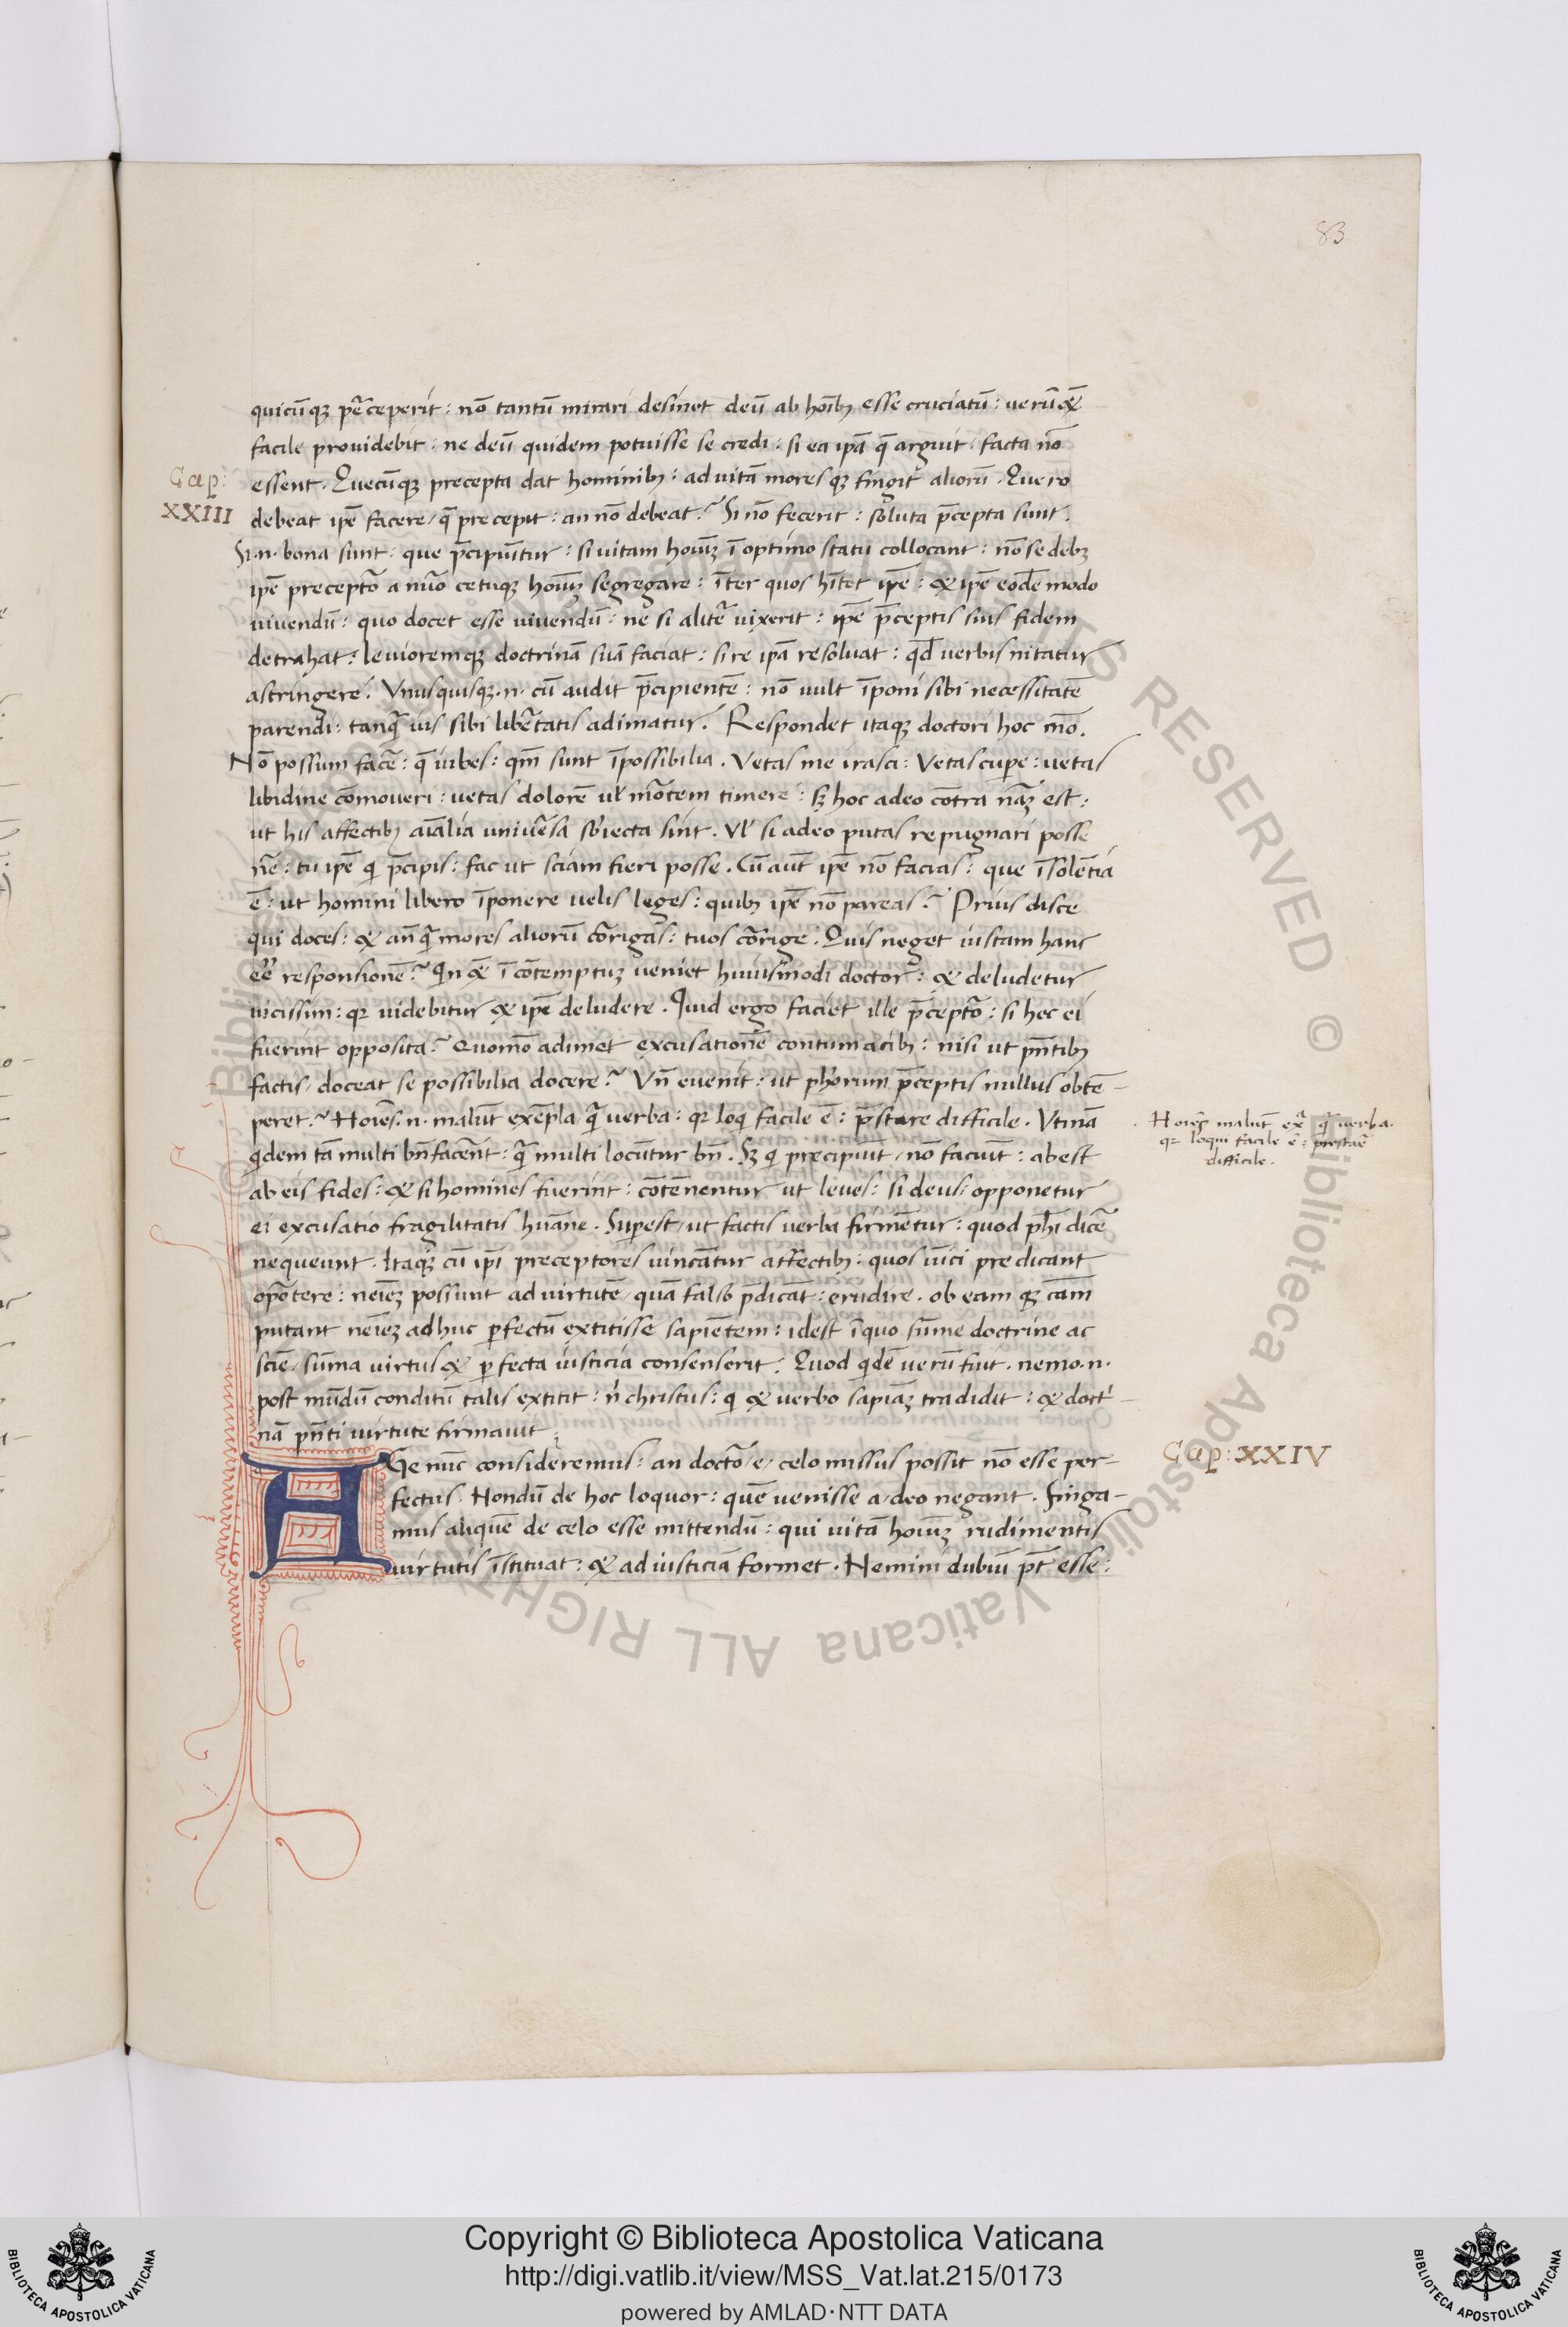 83
quicūqꝫ p̄ceperit: nō tantū mirari desinet deū ab hoībꝫ esse cruciatū: verū &̄
facile providebit: ne deū quidem potuisse se credi: si ea ip̄a q̄ arguit: facta nō
Cap:
XXIII
essent. Quecūqꝫ precepta dat hominibꝫ: ad vitā moresqꝫ fingit aliorū. Quero
debeat ip̄e facere, q̄ precepit: an nō debeat? Si nō fecerit: soluta p̄cepta sunt.
Si.n. bona sunt: que p̄cipiūtur: si vitam hoīuꝫ ī optimo statu collocant: nō se debꝫ
ip̄e preceptō a nūo cetuqꝫ hoīuꝫ segregare: īter quos hītet ip̄e: & ip̄e eodē modo
vivendū: quo docet esse vivendū: ne si alitē vixerit: ip̄e p̄ceptis suis fidem
detrahat: levioremqꝫ doctrinā suā faciat: si re ip̄a resolvat: qd̄ verbis nitatur
astringere. Vnusquisqꝫ.n. cū audit p̄cipientē: nō vult īponi sibi necessitatē
parendi: tanq̄ ius sibi lib̄tatis adimatur. Respondet itaqꝫ doctori hoc mō.
Nō possum facē: q̄ iubes: qm̄ sunt īpossibilia. Vetas me irasci: Vetas cupe: vetas
libidine cōmoveri: vetas dolorē vl' mōtem timere: sꝫ hoc adeo cōtra nāꝫ est:
ut his affectibꝫ aīalia univ̄sa sb'iecta sint. Vl' si adeo putas repugnari posse
nē: tu ip̄e qi p̄cipis: fac ut sciam fieri posse. Cū aūt ip̄e nō facias: que īsolētia
ē: ut homini libero īponere velis leges: quibꝫ ip̄e nō pareas? Prius disce
qui doces: & an̄q̄ mores aliorū cōrigas: tuos cōrige. Quis neget iustam hanc
ēē responsionē? Qn &̄ ī cōtemptuꝫ veniet huiusmodi doctor: & deludetur
vicissim: qꝛ videbitur & ip̄e deludere. Quid ergo faciet ille p̄ceptō: si hec ei
fuerint opposita? Quomō adimet excusationē contumacibꝫ: nisi ut pn̄tibꝫ
factis, doceat se possibilia docere? Vn̄ evenit: ut ph'orum p̄ceptis nullus obtē-
peret? Hoīes.n. malūt exēpla, q̄ verba: qꝛ loqi facile ē: p̄stare difficile. Vtinā
. Hoīes malūt exā q̄ verba.
qꝛ loqui facile ē: prestaē
difficile.
qdem tā multi bn̄facēnt: q̄ multi locūtur bn̄. Sꝫ qi precipiūt, nō faciūt: abest
ab eis fides: & si homines fuerint: cōtēnentur ut leves: si deus: opponetur
ei excusatio fragilitatis hūane. Supest, ut factis verba firmētur: quod ph̄i dicē
nequeunt. Itaqꝫ cū ip̄i preceptores vincātur affectibꝫ: quos vīci predicant
opōtere: neīeꝫ possunt ad virtutē, quā falso p̄dicāt: erudire. ob eamqꝫ cām
putant neīeꝫ adhuc pfectū extitisse sapiētem: idest ī quo sūme doctrine ac
sciē, sūma virtus & pfecta iusticia consenserit. Quod qdē verū fuit. nemo.n.
post mūdū conditū talis extitit: n' christus: qi & verbo sapiāꝫ tradidit: & doct'-
nā pn̄ti virtute firmauit;
Cap: XXIV
AGe nūc consideremus: an doctō e, celo missus possit nō esse per-
fectus. Nondū de hoc loquor: quē venisse a, deo negant. Finga-
mus aliquē de celo esse mittendū: qui vitā hoīuꝫ rudimentis
virtutis īstituat: & ad iusticiā formet. Nemini dubiū pt̄ esse:
© Biblioteca Apostolica Vaticana ALL RIGHTS RESERVED
Copyright © Biblioteca Apostolica Vaticana
http://digi.vatlib.it/view/MSS_Vat.lat.215/0173
powered by AMLAD·NTT DATA
BIBLIOTECA APOSTOLICA VATICANA
BIBLIOTECA APOSTOLICA VATICANA